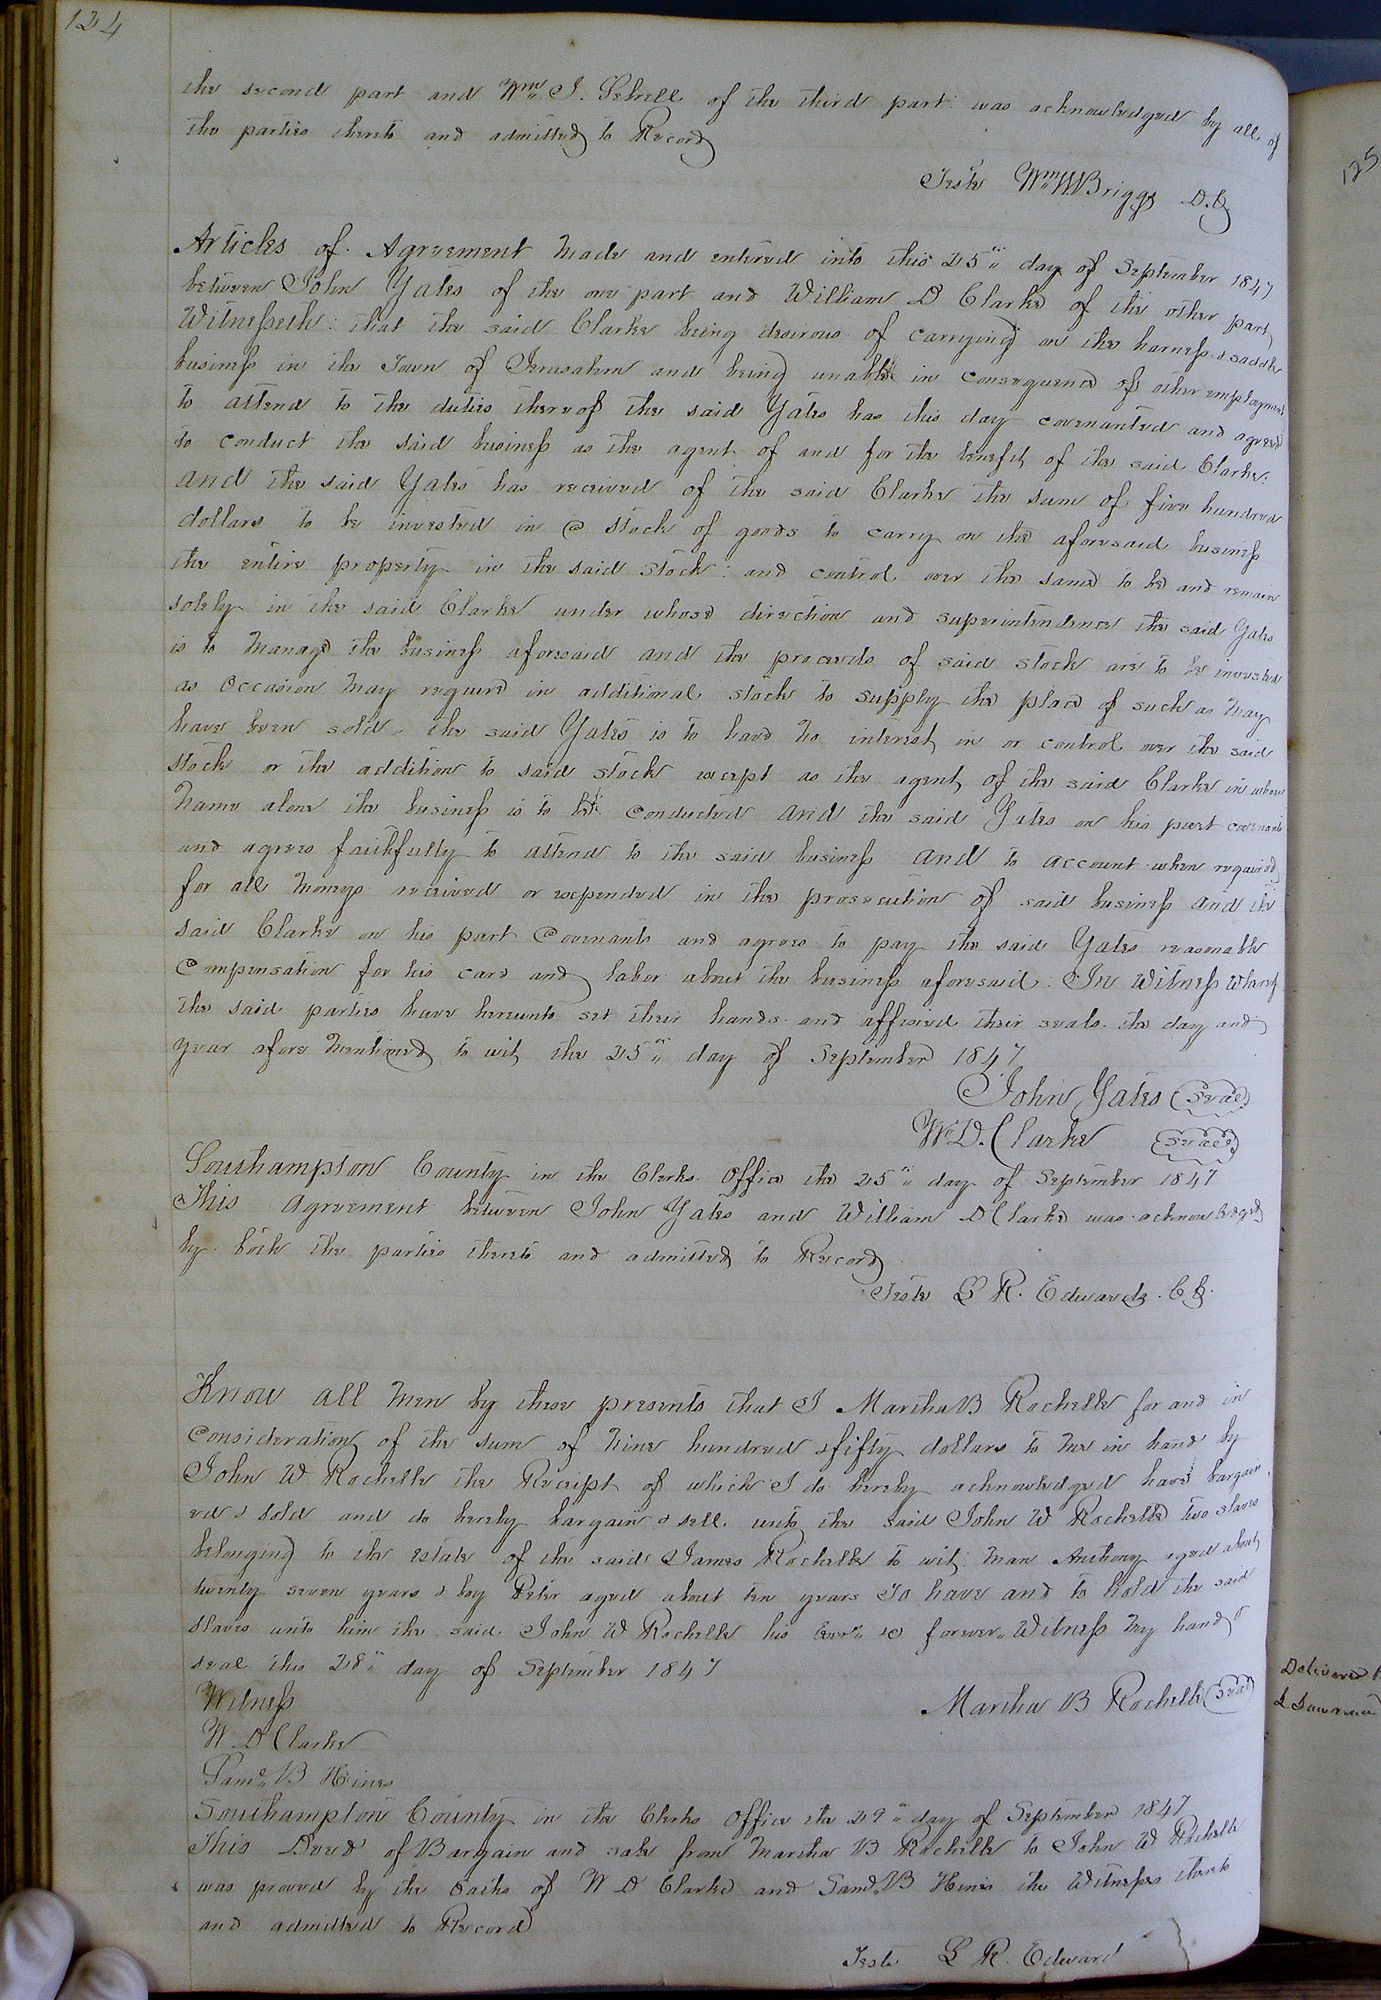 124
the second part and Wm. J. Sebrell of the third part was acknowledged by all of
the parties thereto and admitted to Record
Teste Wm W Briggs D.C.
Articles of Agreement made and entered into this 25th day of September 1847
between John Yates of the one part and William D Clarke of the other part
Witnesseth: that the said Clarke being desirous of carrying on the harness & saddle
business in the Town of Jerusalem and being unable in consequence of other employment
to attend to the duties thereof the said Yates has this day covenanted and agreed
to conduct the said business as the agent of and for the benefit of the said Clarke:
and the said Yates has received of the said Clarke the sum of five hundred
dollars to be invested in a stock of goods to carry on the aforesaid business
the entire property in the said stock: and control over the same to be and remain
solely in the said Clarke under whose direction and superintendence the said Yates
is to manage the business aforesaid and the proceeds of said stock are to be invested
as occasion may require in additional stock to supply the place of such as may
have been sold. the said Yates is to have no interest in or control over the said
stock or the addition to said stock except as the agent of the said Clarke in whose
name alone the business is to be conducted and the said Yates on his part covenants
and agrees faithfully to attend to the said business and to account when required
for all moneys received or expended in the prosecution of said business and the
said Clarke on his part covenants and agrees to pay the said Yates reasonable
compensation for his care and labor about the business aforesaid: In Witness whereof
the said parties have hereunto set their hands and affixed their seals the day and
year afore mentioned to wit the 25th day of September 1847
John Yates (Seal)
W D. Clarke (Seal)
Southampton County in the Clerks Office the 25th day of September 1847
This Agreement between John Yates and William D Clarke was acknowledged
by both the parties thereto and admitted to Record.
Teste L R. Edwards. C.C.
Know all men by these presents that I Martha B Rochelle for and in
consideration of the sum of nine hundred & fifty dollars to me in hand by
John W Rochelle the Receipt of which I do hereby acknowledged have bargain
ed & sold and do hereby bargain & sell unto the said John W Rochelle two slaves
belonging to the estate of the said James Rochelle to wit: man Anthony aged about
twenty seven years & boy Peter aged about ten years To have and to hold the said
slaves unto him the said John W Rochelle his forever. Witness my hand &
seal this 28th day of September 1847
Witness Martha B Rochelle (Seal)
W D Clarke
Saml. B Hines
Southampton County in the Clerks Office the 29th day of September 1847
This Deed of Bargain and sale from Martha B Rochelle to John W Rochelle
was proved by the oaths of W D Clarke and Saml. B Hines the Witnesses thereto
and admitted to Record
Teste L R. Edward
125
Delivered